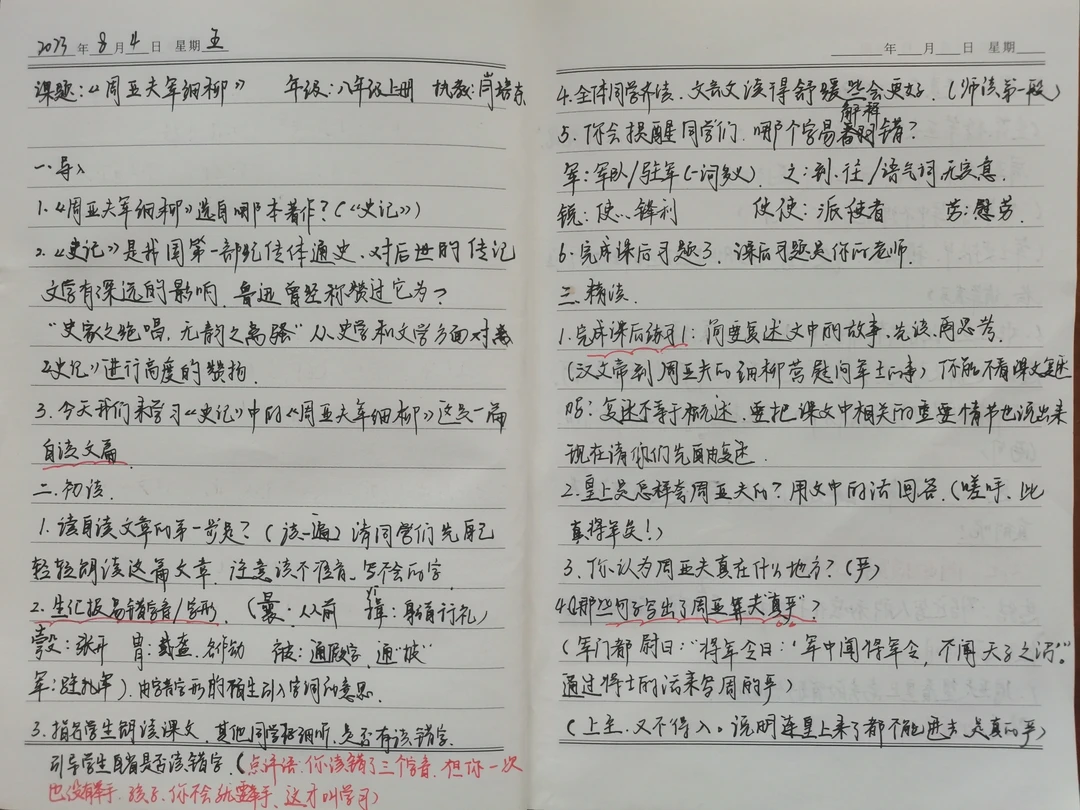 2023年8月4日 星期五
课题:《周亚夫军细柳》 年级:八年级上册 执教:肖培东
一.导入
1.《周亚夫军细柳》选自哪本著作?(《史记》)
2.《史记》是我国第一部纪传体通史、对后世的传记
文学有深远的影响,鲁迅曾经称赞过它为?
“史家之绝唱,无韵之离骚”从史学和文学方面对
《史记》进行高度的赞扬.
3.今天我们来学习《史记》中的《周亚夫军细柳》这是一篇
自读文篇
二.初读.
1.读自读文章的第一步是?(读一遍)请同学们先自己
轻轻朗读这篇文章.注意读不准音、写不会的字
2.生汇报易错字音/字形 (曩:从前 揖:身俯行礼)
彀:张开 胄:戴盔.名作动 被:通假字,通“披”
军:驻扎军).由字音字形的确生引入字词和意思.
3.指名学生朗读课文.其他同学仔细听.是否有读错字.
引导学生自省是否读错字.(点评语:你读错了三个字音.但你一次
也没有举手.孩子.你不会就要举手.这才叫学习)
年 月 日 星期
4.全体同学齐读.文言文读得舒缓些会更好.(师读第一段)
5.你会提醒同学们.哪个字易解释错?
军:军队/驻军(一词多义). 之:到.往/语气词.无实意.
锐:使..锋利 使使:派使者 劳:慰劳.
6.完成课后习题3.课后习题是你的老师.
三.精读.
1.完成课后练习1:简要复述文中的故事.先读.再思考.
(汉文帝到周亚夫的细柳营慰问军士的事)你能不看课文复述
吗:复述不等于概述.要把课文中相关的重要情节也说出来
现在请你们先自由复述.
2.皇上是怎样夸周亚夫的?用文中的话回答.(嗟呼,此
真将军矣!)
3.你认为周亚夫真在什么地方?(严)
4.哪些句子写出了周亚夫“真严”?
(军门都尉曰:“将军令曰:‘军中闻将军令,不闻天子之诏’”.
通过将士的话来写周的严)
(上至.又不得入。说明连皇上来了都不能进去.是真的严)